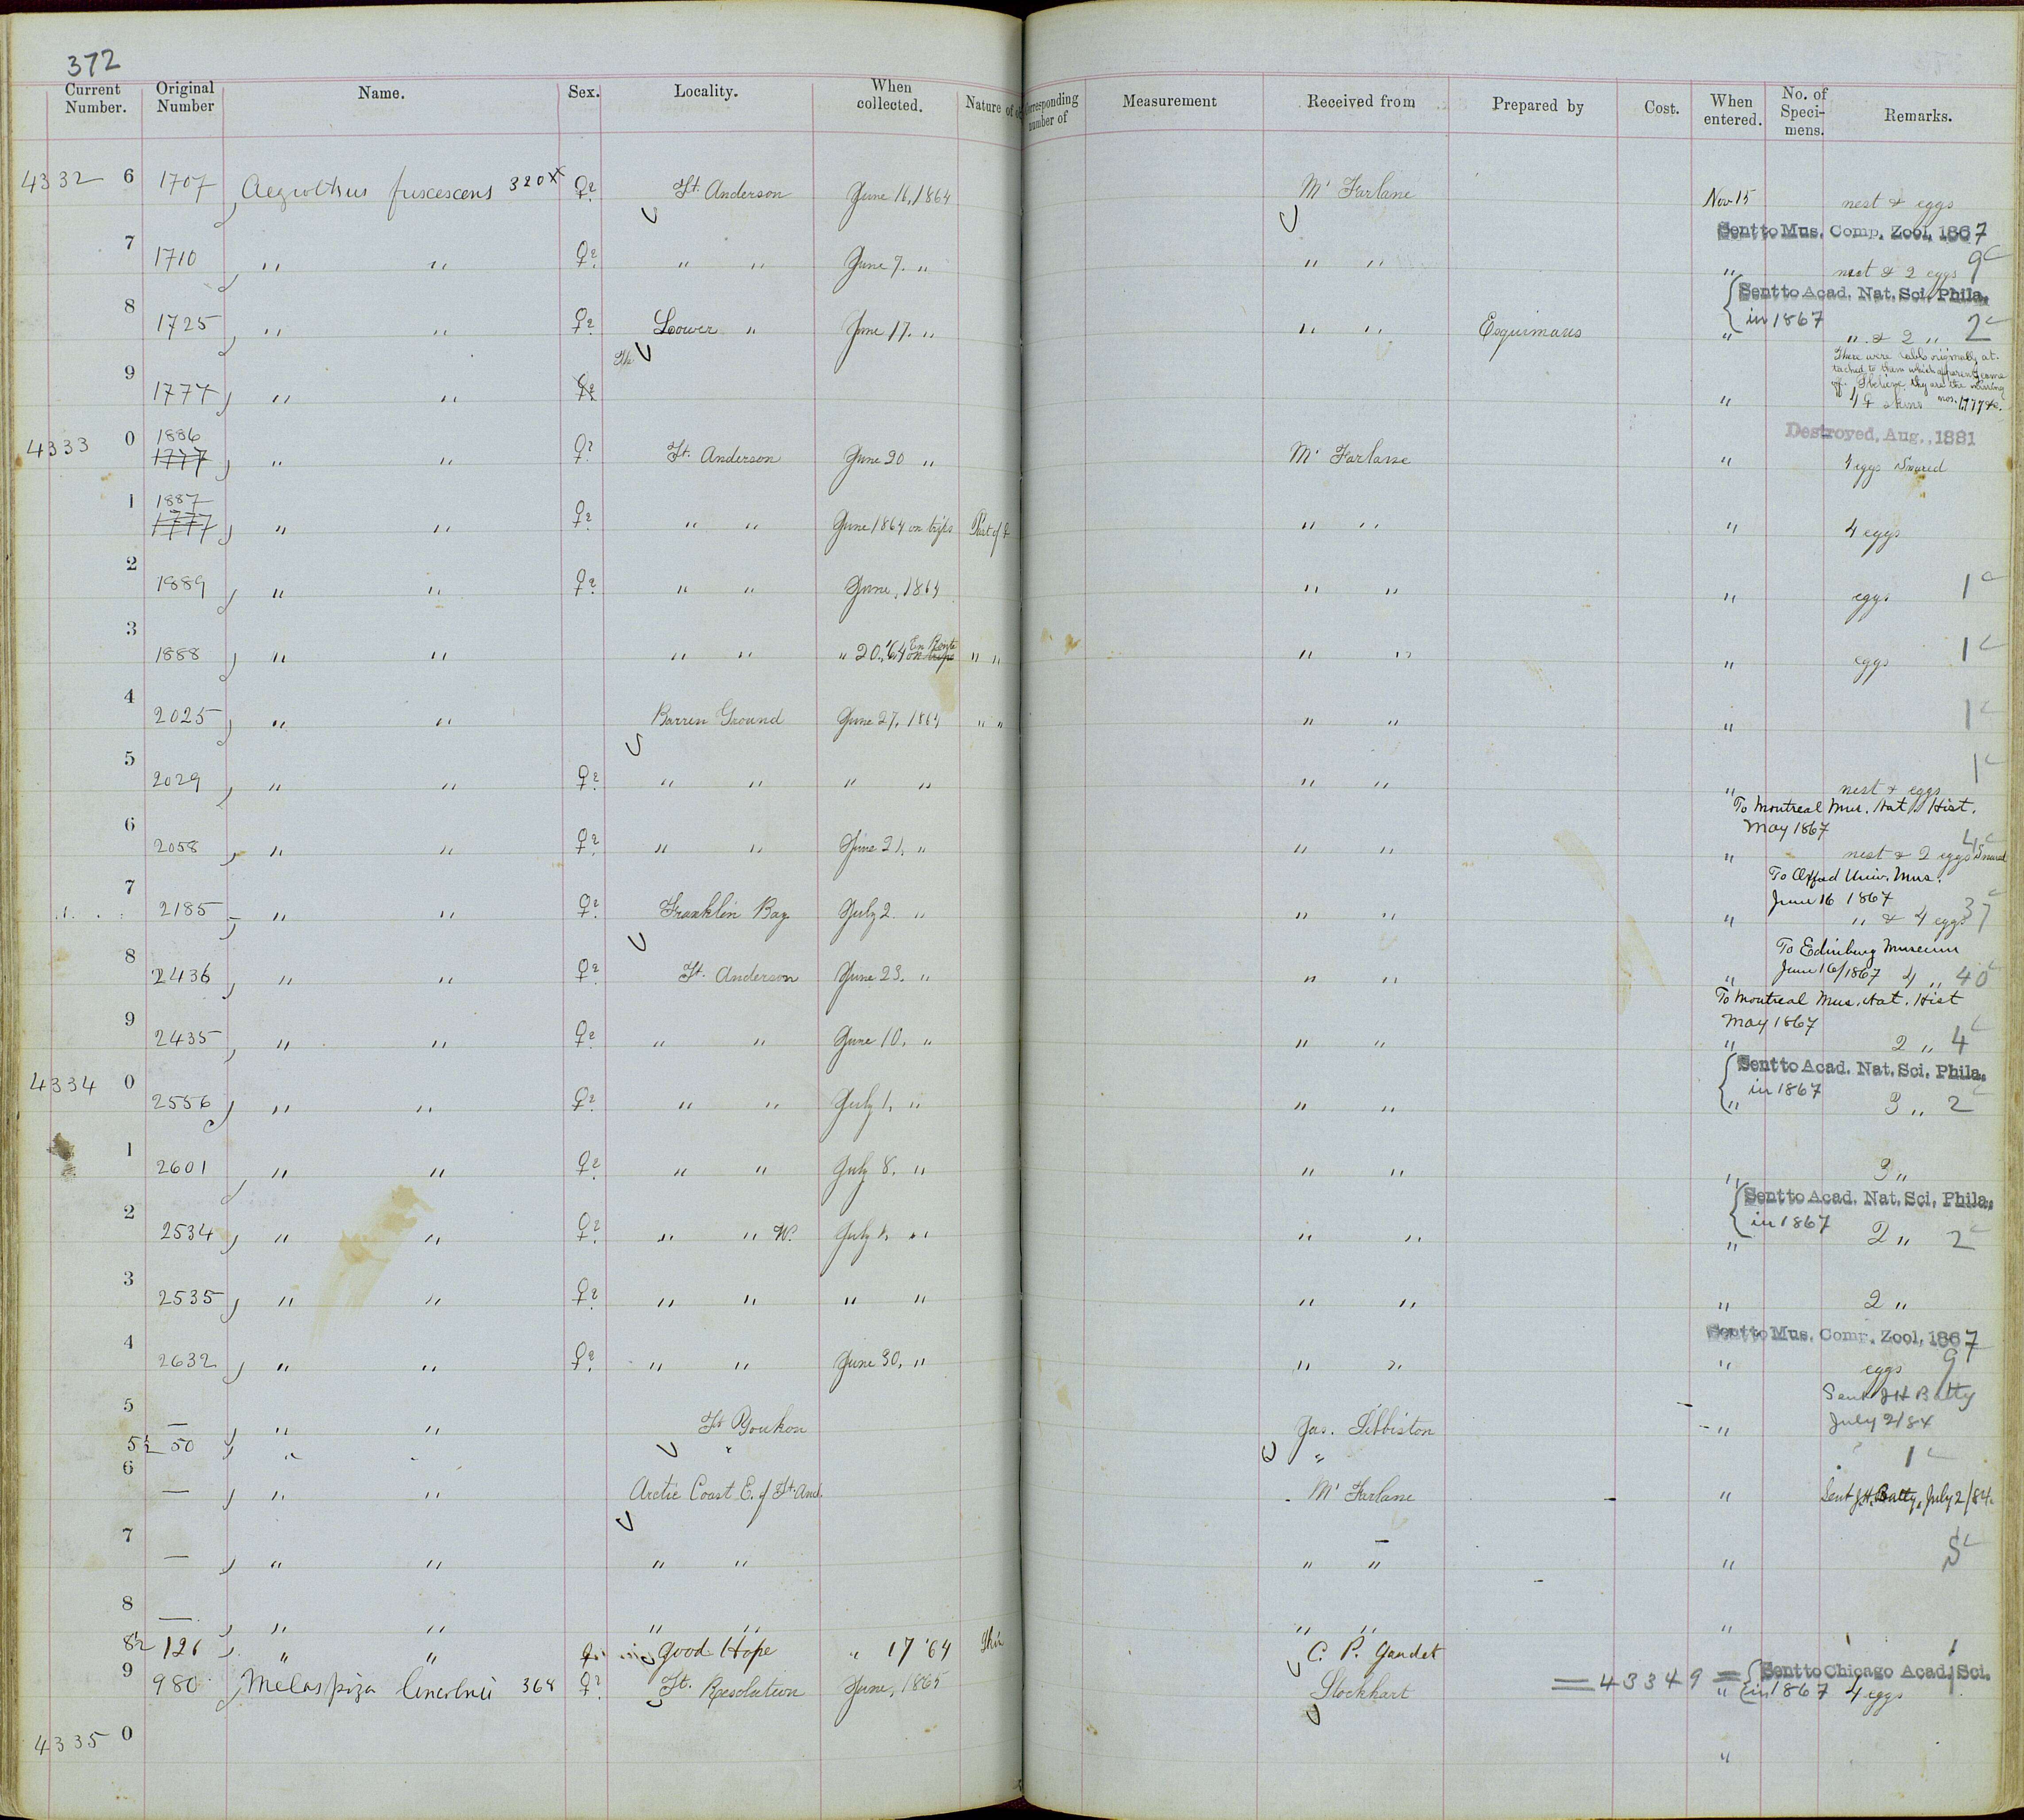 372
Current Number. Original Number Name. Sex. Locality. When collected. Nature of Corresponding number of Measurement Received from Prepared by Cost. When entered. No. of Specimens. Remarks.
4332 6 1707 Aegiothus fuscescens 320x ♀? Ft. Anderson June 16, 1864 Mc Farlane Nov 15 nest & eggs
Sent to Mus. Comp. Zool. 1867
7 1710 " " ♀? " " June 7. " " " " nest & 2 eggs 9
Sent to Acad. Nat. Sci. Phila.
in 1867
8 1725 " " ♀? Lower " June 17. " " " Esquimaus " " & 2 " 2
There were labls originally at-
tached to them which apparently came
off. I believe they are the missing
nos. 1777 &c.
9 1774 " " "
Destroyed, Aug., 1881
4333 0 1886 1777 " " ♀? Ft. Anderson June 20 " Mc Farlane " 4 eggs Snared
1 1887 1777 " " ♀? " " June 1864 on trips Part of " " " 4 eggs
2 1889 " " ♀? " " June, 1864 " " " eggs 1
3 1888 " " " " " 20, '64 En Route on trips " " " " " eggs 1
4 2025 " " Barren Ground June 27, 1864 " " " " " 1
1
5 2029 " " ♀? " " " " " " " nest & eggs
To Montreal Mus. Nat. Hist.
May 1867
6 2058 " " ♀? " " June 21, " " " " nest & 2 eggs Snared 4
To Oxford Univ. Mus.
June 16 1867
7 2185 " " ♀? Franklin Bay July 2. " " " " " & 4 eggs 37
To Edinburg Museum
June 16/1867
8 2436 " " ♀? Ft. Anderson June 23. " " " " 4 " 40
To Montreal Mus. Nat. Hist
May 1867
9 2435 " " ♀? " " June 10, " " " " 2 " 4
Sent to Acad. Nat. Sci. Phila.
in 1867
4334 0 2556 " " ♀? " " July 1, " " " " 3 " 2
1 2601 " " ♀? " " July 8. " " " " 3 "
Sent to Acad. Nat. Sci. Phila.
in 1867
2 2534 " " ♀? " " W. July " " " " 2 " 2
3 2535 " " ♀? " " " " " " " 2 "
Sent to Mus. Comp. Zool. 1867
4 2632 " " ♀? " " June 30, " " " " eggs 9
Sent J H Batty
July 2/84
5 — " " Ft Youkon Jas. Sibbiston "
5½ 50 " " " " 1
6 — " " Arctic Coast E. of Ft. And. Mc Farlane " Sent J. H. Batty, July 2/84.
7 — " " " " " " " 5
8 — " " " " " " "
8½ 126 " " Good Hope " 17 '64 C. P. Gaudet 1
Sent to Chicago Acad. Sci.
in 1867
9 980 Melospiza lincolnii 368 ♀? Ft. Resolution June, 1865 Lockhart = 43349 = " 4 eggs
4335 0 "